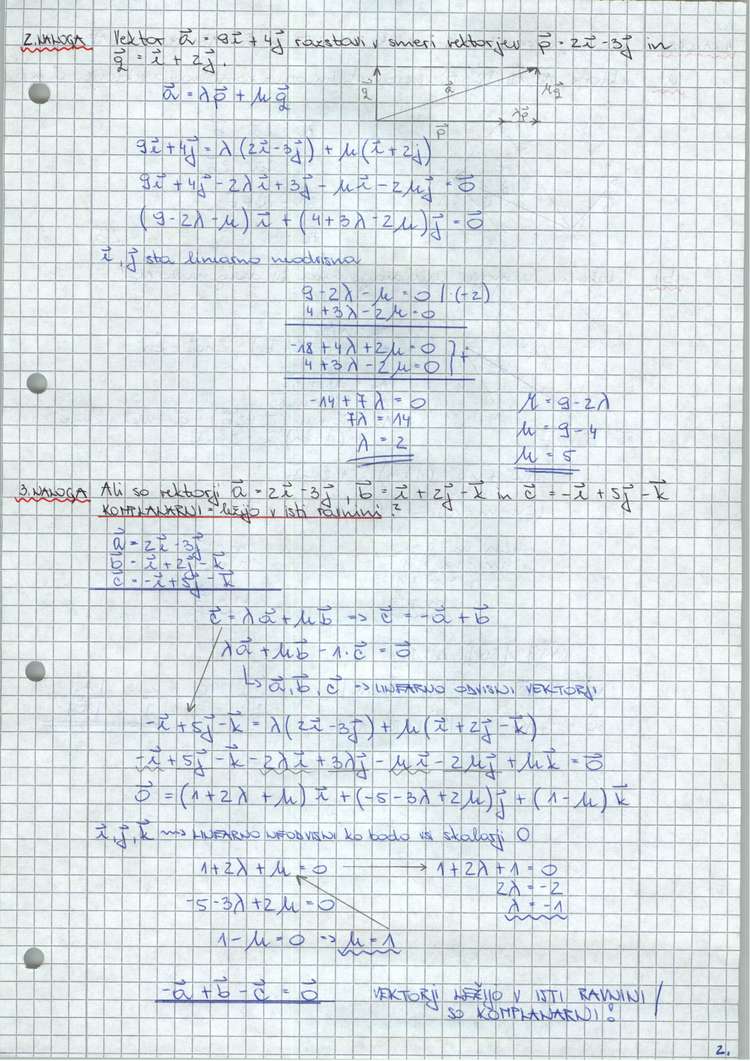 2. NALOGA Vektor a⃗ = 9i⃗ + 4j⃗ razstavi v smeri vektorjev p⃗ = 2i⃗ - 3j⃗ in
q⃗ = i⃗ + 2j⃗.
a⃗ = λp⃗ + μq⃗
q⃗ a⃗ μq⃗
p⃗ λp⃗
9i⃗ + 4j⃗ = λ(2i⃗ - 3j⃗) + μ(i⃗ + 2j)
9i⃗ + 4j⃗ - 2λi⃗ + 3j⃗ - μi⃗ - 2μj⃗ = 0⃗
(9 - 2λ - μ)i⃗ + (4 + 3λ - 2μ)j⃗ = 0⃗
i⃗, j⃗ sta linearno neodvisna
9 - 2λ - μ = 0 | (-2)
4 + 3λ - 2μ = 0
-18 + 4λ + 2μ = 0
4 + 3λ - 2μ = 0 } +
-14 + 7λ = 0 μ = 9 - 2λ
7λ = 14 μ = 9 - 4
λ = 2 μ = 5
3. NALOGA Ali so vektorji a⃗ = 2i⃗ - 3j⃗, b⃗ = i⃗ + 2j⃗ - k⃗ in c⃗ = -i⃗ + 5j⃗ - k⃗
KOMPLANARNI = ležijo v isti ravnini?
a⃗ = 2i⃗ - 3j⃗
b⃗ = i⃗ + 2j⃗ - k⃗
c⃗ = -i⃗ + 5j⃗ - k⃗
c⃗ = λa⃗ + μb⃗ => c⃗ = -a⃗ + b⃗
λa⃗ + μb⃗ - 1·c⃗ = 0⃗
↳ a⃗, b⃗, c⃗ → LINEARNO ODVISNI VEKTORJI
-i⃗ + 5j⃗ - k⃗ = λ(2i⃗ - 3j⃗) + μ(i⃗ + 2j⃗ - k⃗)
-i⃗ + 5j⃗ - k⃗ - 2λi⃗ + 3λj⃗ - μi⃗ - 2μj⃗ + μk⃗ = 0⃗
0⃗ = (1 + 2λ + μ)i⃗ + (-5 - 3λ + 2μ)j⃗ + (1 - μ)k⃗
i⃗, j⃗, k⃗ => LINEARNO NEODVISNI ko bodo vsi skalarji 0
1 + 2λ + μ = 0 → 1 + 2λ + 1 = 0
2λ = -2
-5 - 3λ + 2μ = 0 λ = -1
1 - μ = 0 => μ = 1
-a⃗ + b⃗ - c⃗ = 0⃗ VEKTORJI LEŽIJO V ISTI RAVNINI /
SO KOMPLANARNI!
2.